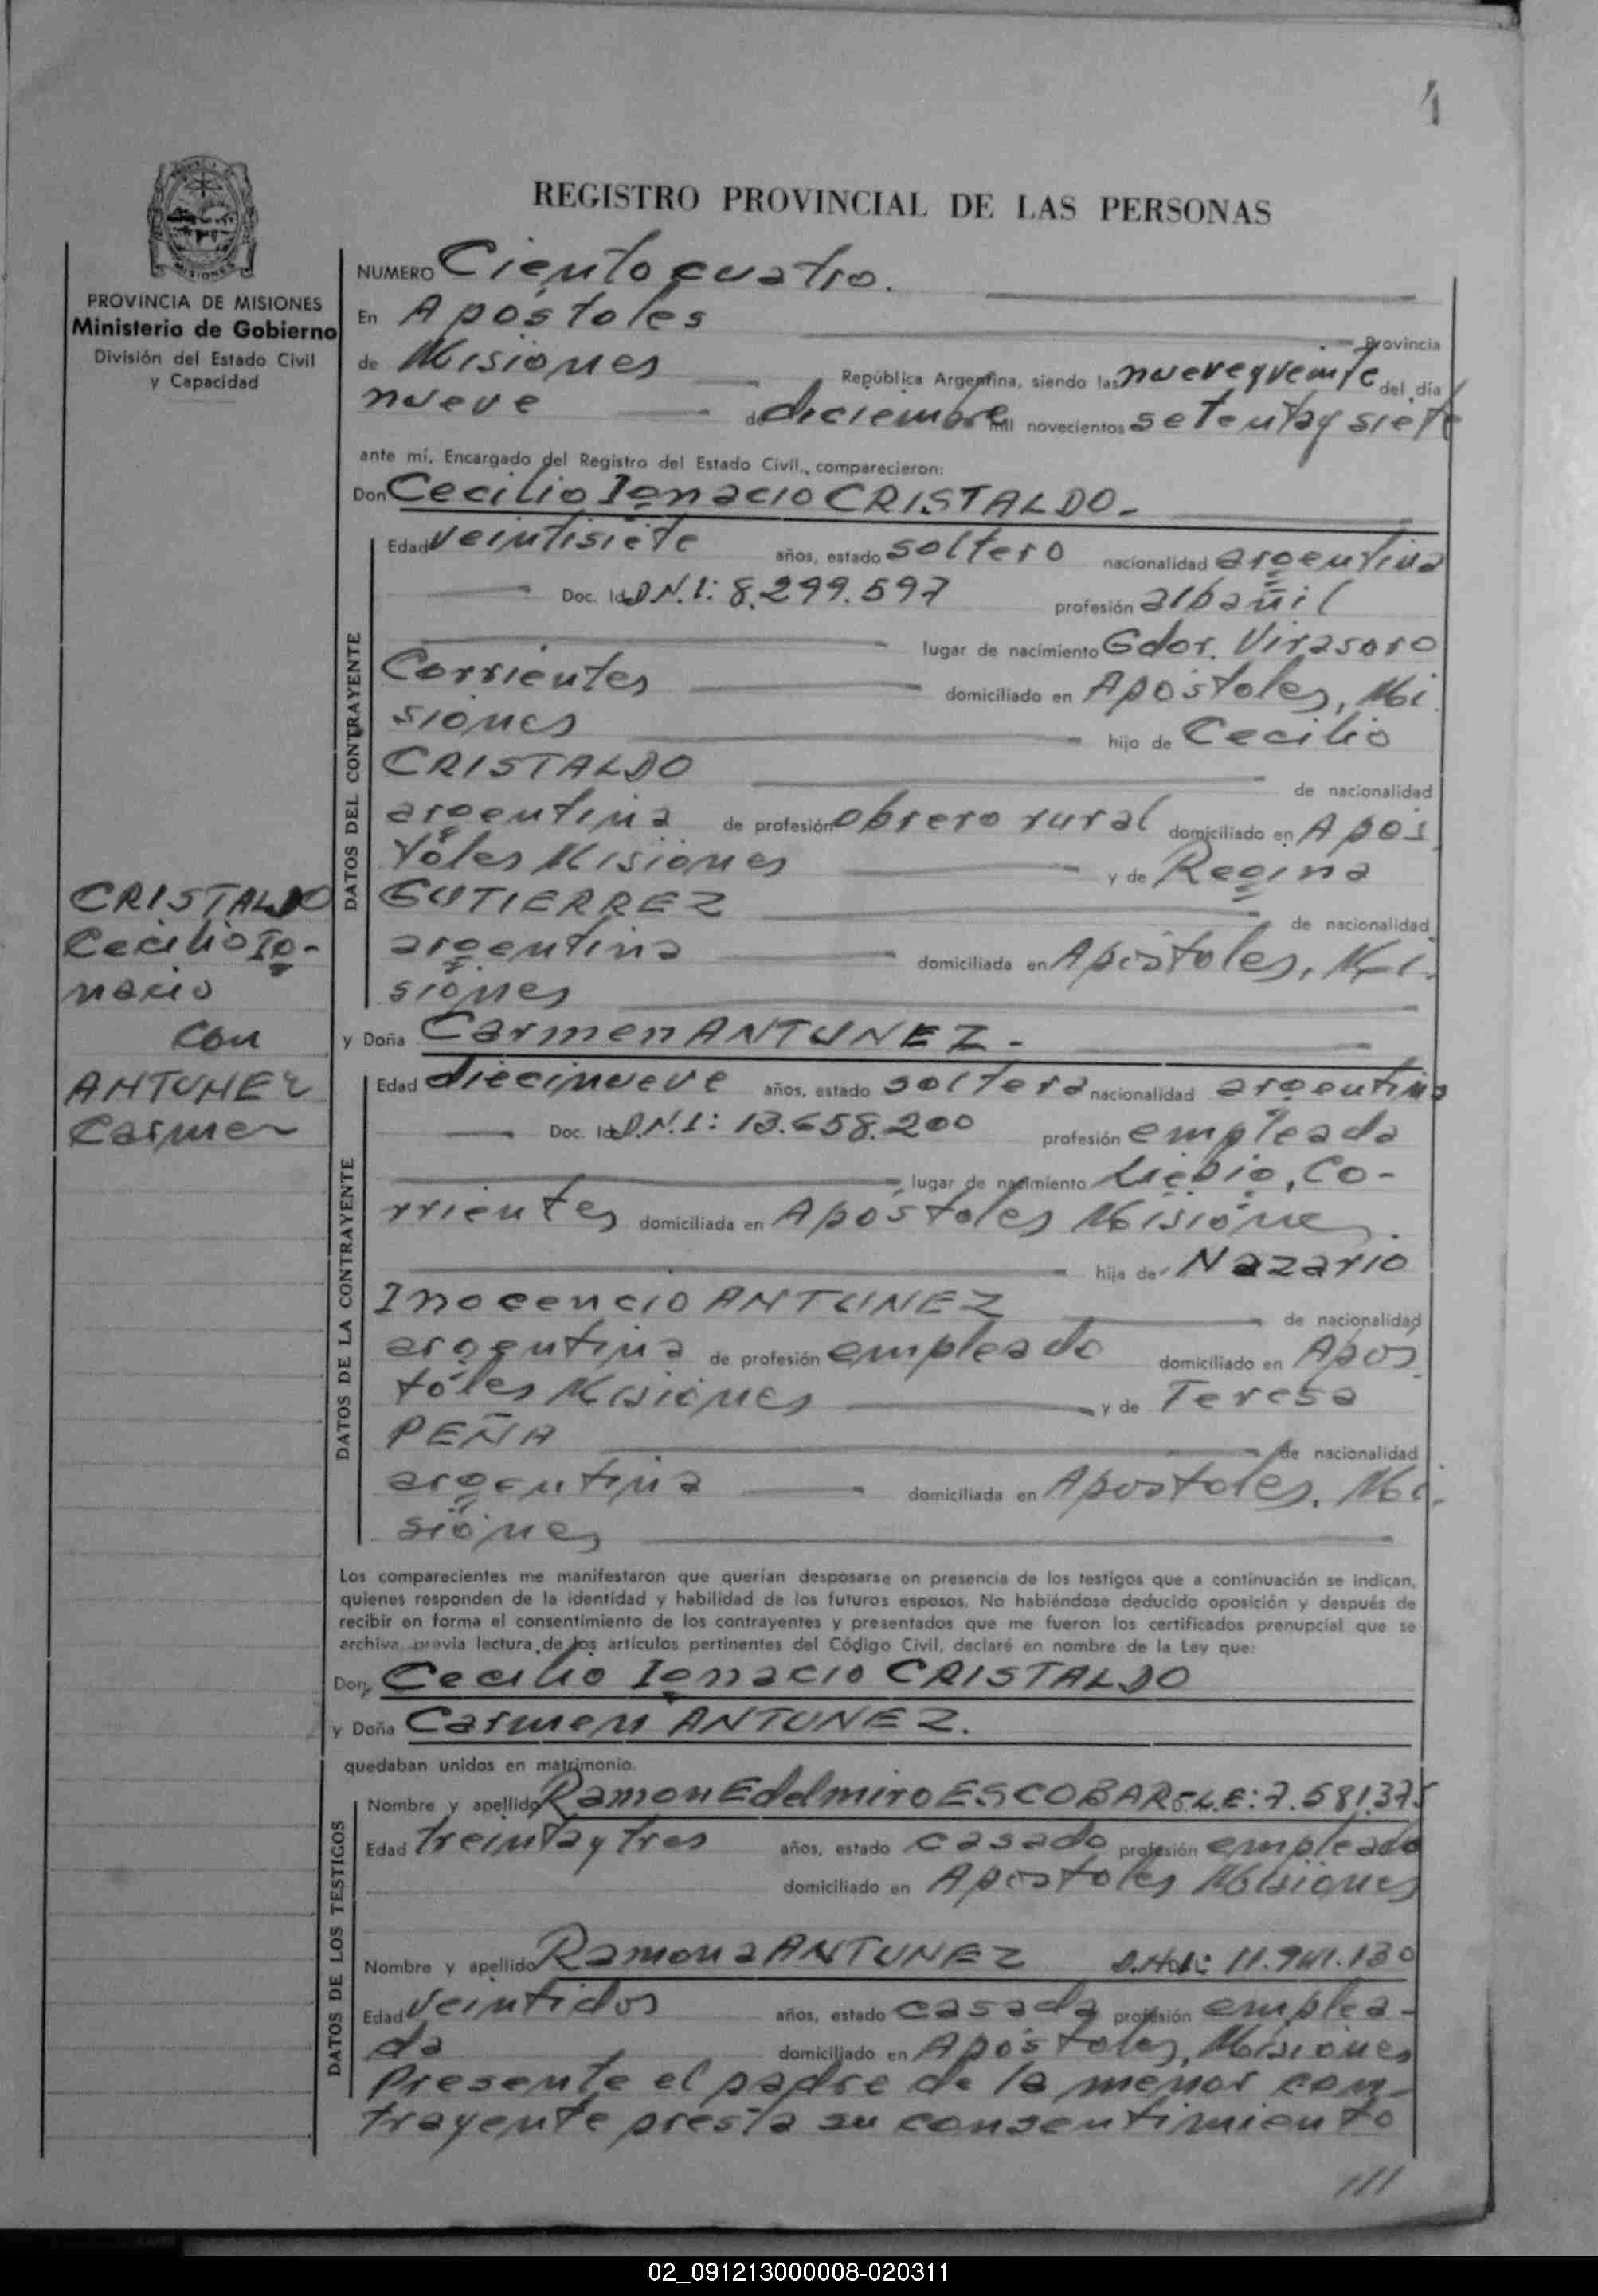 1
REGISTRO PROVINCIAL DE LAS PERSONAS
MISIONES
PROVINCIA DE MISIONES
Ministerio de Gobierno
División del Estado Civil
y Capacidad
NUMERO Ciento cuatro.
En Apóstoles Provincia
de Misiones República Argentina, siendo las nueve y veinte del día
nueve de diciembre mil novecientos setenta y siete
ante mí, Encargado del Registro del Estado Civil., comparecieron:
Don Cecilio Ignacio CRISTALDO.
DATOS DEL CONTRAYENTE
Edad veintisiete años, estado soltero nacionalidad argentina
Doc. Id. D.N.I: 8.299.597 profesión albañil
lugar de nacimiento Gdor. Virasoro
Corrientes domiciliado en Apóstoles, Mi
siones hijo de Cecilio
CRISTALDO de nacionalidad
argentina de profesión obrero rural domiciliado en Após
toles Misiones y de Regina
GUTIERREZ de nacionalidad
argentina domiciliada en Apóstoles, Mi.
siones
CRISTALDO
Cecilio Ig-
nacio
con
ANTUNEZ
Carmen
y Doña Carmen ANTUNEZ.-
DATOS DE LA CONTRAYENTE
Edad diecinueve años, estado soltera nacionalidad argentina
Doc. Id. D.N.I: 13.658.200 profesión empleada
lugar de nacimiento Liebig, Co-
rrientes domiciliada en Apóstoles Misiones
hija de Nazario
Inocencio ANTUNEZ de nacionalidad
argentina de profesión empleado domiciliado en Após
toles Misiones y de Teresa
PEÑA de nacionalidad
argentina domiciliada en Apostoles, Mi.
siones
Los comparecientes me manifestaron que querían desposarse en presencia de los testigos que a continuación se indican,
quienes responden de la identidad y habilidad de los futuros esposos. No habiéndose deducido oposición y después de
recibir en forma el consentimiento de los contrayentes y presentados que me fueron los certificados prenupcial que se
archiva, previa lectura de los artículos pertinentes del Código Civil, declaré en nombre de la Ley que:
Don Cecilio Ignacio CRISTALDO
y Doña Carmen ANTUNEZ.
quedaban unidos en matrimonio.
DATOS DE LOS TESTIGOS
Nombre y apellido Ramon Edelmiro ESCOBAR-L.E: 7.581.375
Edad treinta y tres años, estado casado profesión empleado
domiciliado en Apostoles Misiones
Nombre y apellido Ramona ANTUNEZ 11.941.130
Edad veintidos años, estado casada profesión emplea-
da domiciliado en Apóstoles, Misiones
Presente el padre de la menor con-
trayente presta su consentimiento
///
02_091213000008-020311